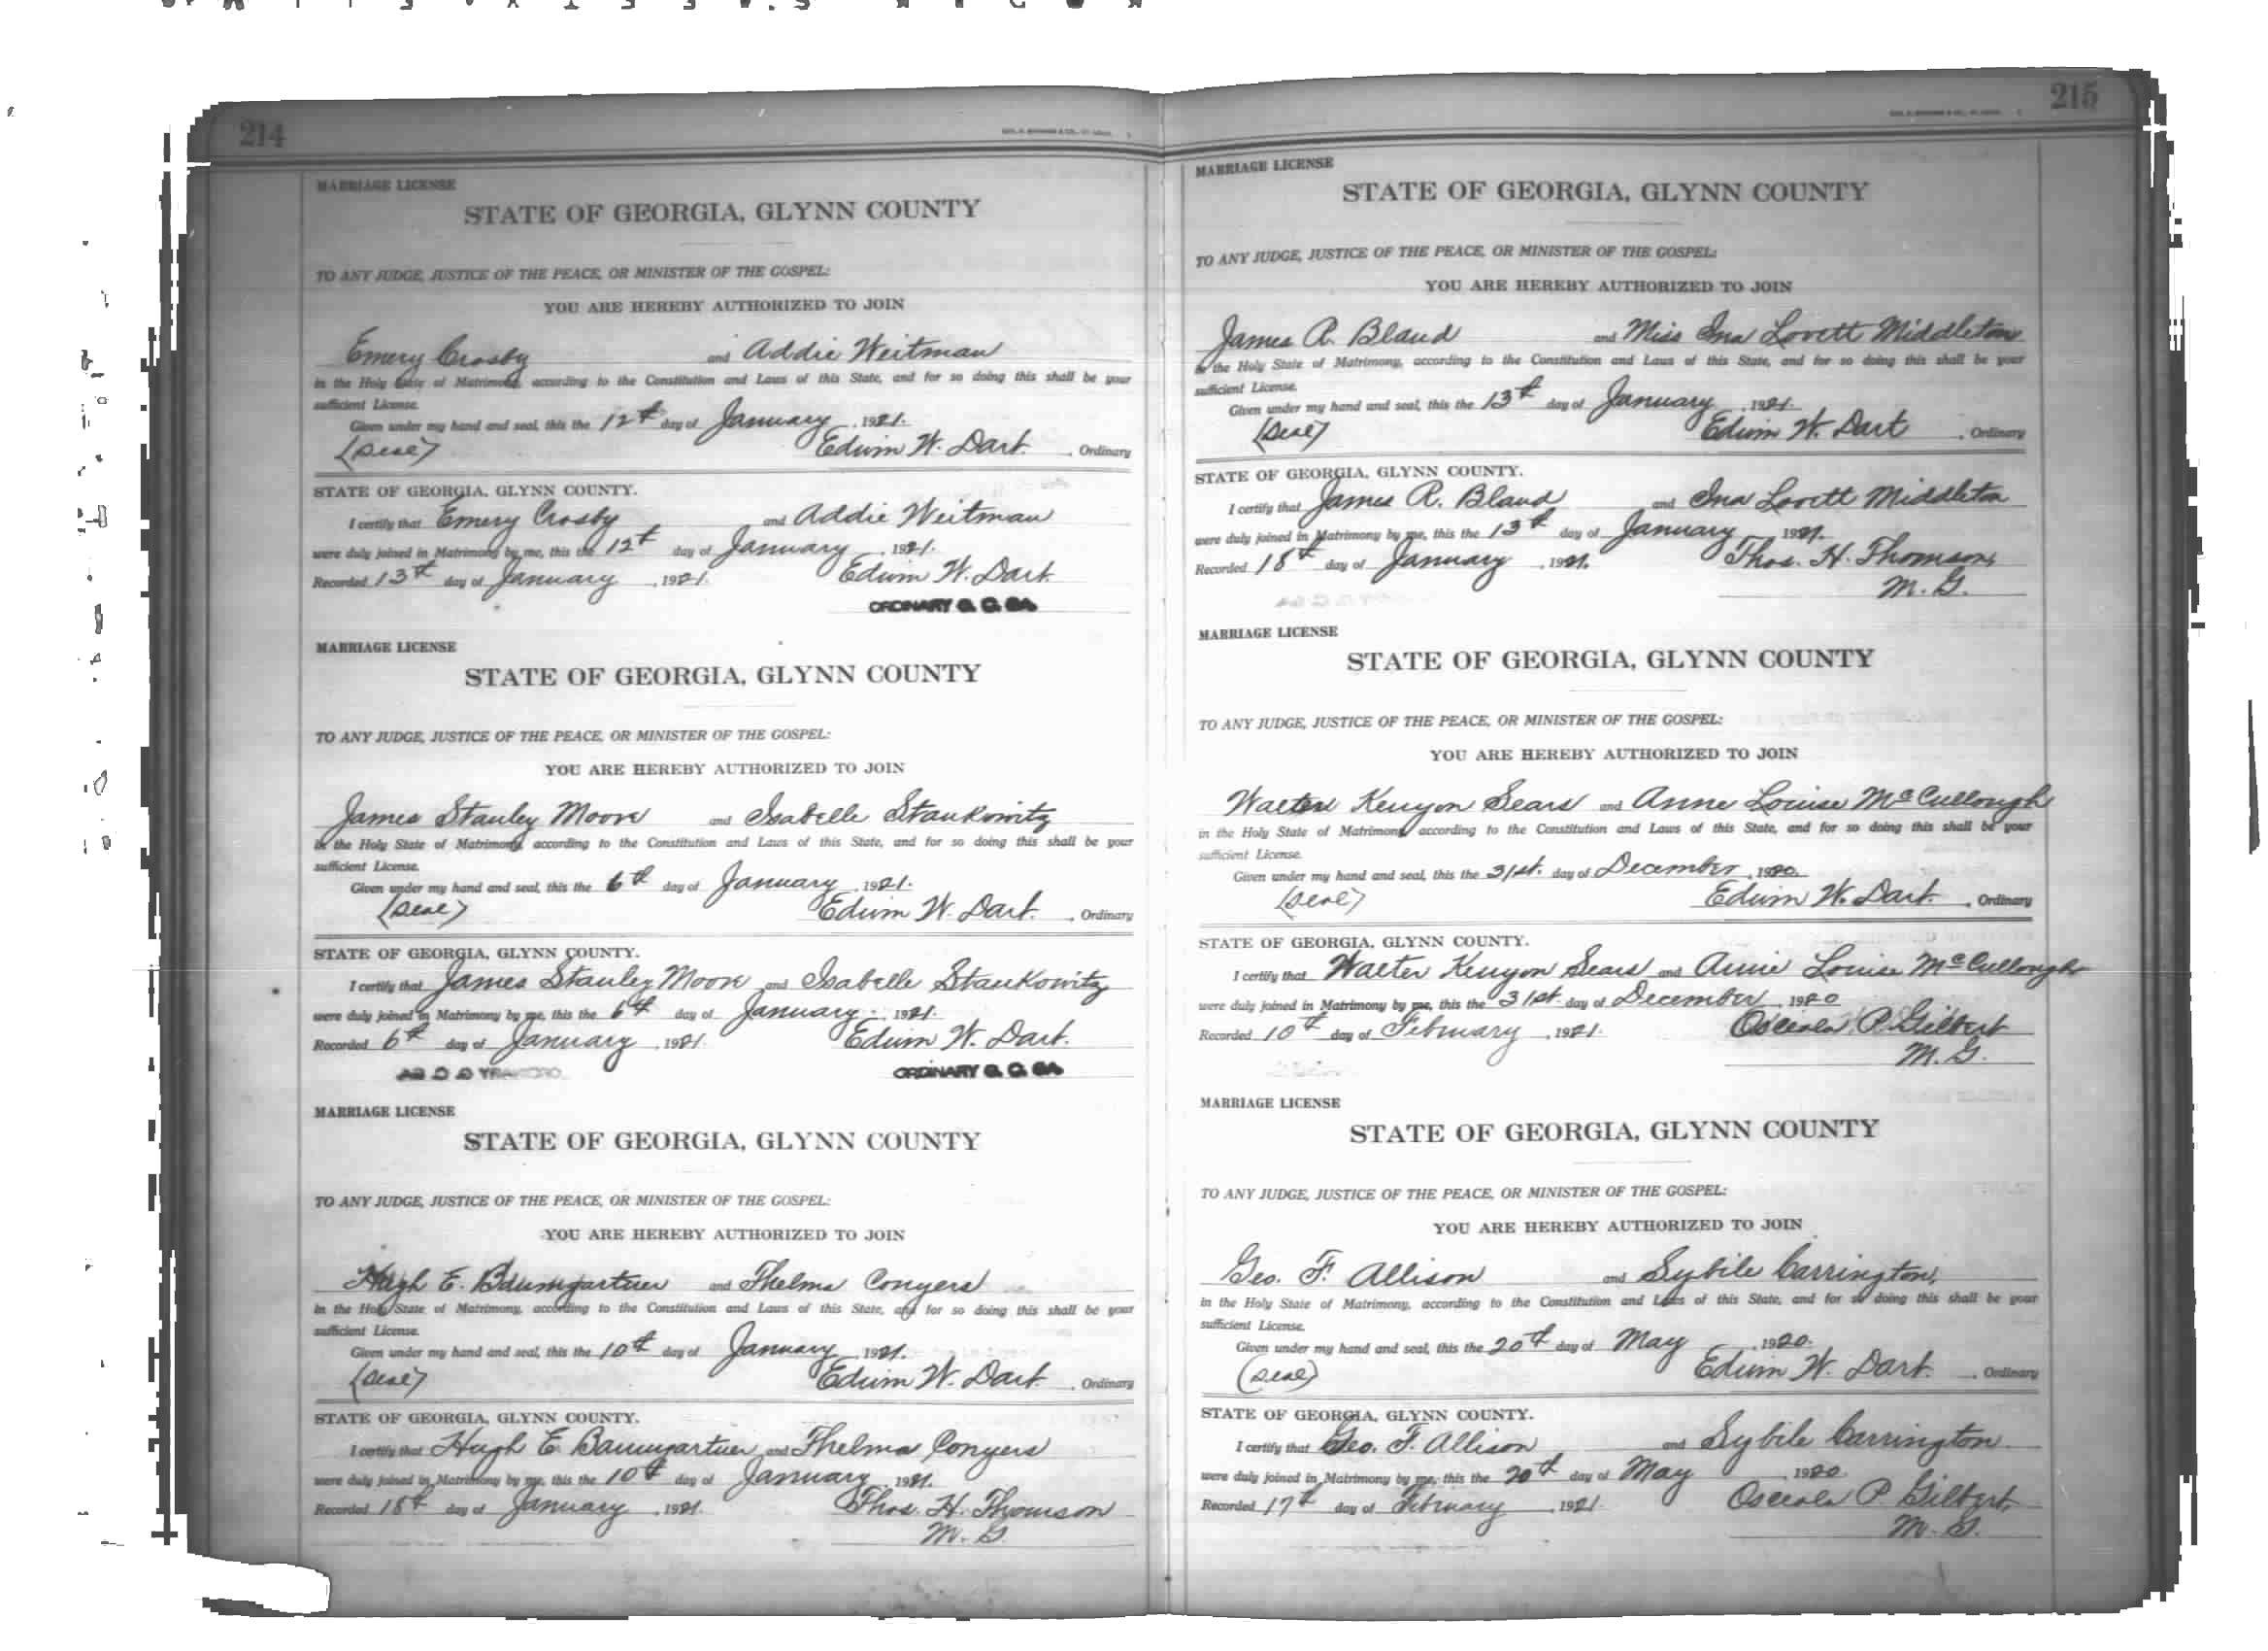 214
MARRIAGE LICENSE
STATE OF GEORGIA, GLYNN COUNTY
TO ANY JUDGE, JUSTICE OF THE PEACE, OR MINISTER OF THE GOSPEL:
YOU ARE HEREBY AUTHORIZED TO JOIN
Emery Crosby and Addie Weitman
in the Holy State of Matrimony, according to the Constitution and Laws of this State, and for so doing this shall be your
sufficient License.
Given under my hand and seal, this the 12th day of January, 1921.
(Seal) Edwin W. Dart, Ordinary
STATE OF GEORGIA, GLYNN COUNTY.
I certify that Emery Crosby and Addie Weitman
were duly joined in Matrimony by me, this the 12th day of January, 1921.
Recorded 13th day of January, 1921. Edwin W. Dart
ORDINARY G. C. GA
MARRIAGE LICENSE
STATE OF GEORGIA, GLYNN COUNTY
TO ANY JUDGE, JUSTICE OF THE PEACE, OR MINISTER OF THE GOSPEL:
YOU ARE HEREBY AUTHORIZED TO JOIN
James Stanley Moore and Isabelle Stankowitz
in the Holy State of Matrimony, according to the Constitution and Laws of this State, and for so doing this shall be your
sufficient License.
Given under my hand and seal, this the 6th day of January, 1921.
(Seal) Edwin W. Dart, Ordinary
STATE OF GEORGIA, GLYNN COUNTY.
I certify that James Stanley Moore and Isabelle Stankowitz
were duly joined in Matrimony by me, this the 6th day of January, 1921.
Recorded 6th day of January, 1921. Edwin W. Dart.
ORDINARY G. C. GA
MARRIAGE LICENSE
STATE OF GEORGIA, GLYNN COUNTY
TO ANY JUDGE, JUSTICE OF THE PEACE, OR MINISTER OF THE GOSPEL:
YOU ARE HEREBY AUTHORIZED TO JOIN
Hugh E. Baumgartner and Thelma Conyers
in the Holy State of Matrimony, according to the Constitution and Laws of this State, and for so doing this shall be your
sufficient License.
Given under my hand and seal, this the 10th day of January, 1921.
(Seal) Edwin W. Dart, Ordinary
STATE OF GEORGIA, GLYNN COUNTY.
I certify that Hugh E. Baumgartner and Thelma Conyers
were duly joined in Matrimony by me, this the 10th day of January, 1921.
Recorded 18th day of January, 1921. Thos. H. Thomson
M. G.
215
MARRIAGE LICENSE
STATE OF GEORGIA, GLYNN COUNTY
TO ANY JUDGE, JUSTICE OF THE PEACE, OR MINISTER OF THE GOSPEL:
YOU ARE HEREBY AUTHORIZED TO JOIN
James R. Bland and Miss Ina Lovett Middleton
in the Holy State of Matrimony, according to the Constitution and Laws of this State, and for so doing this shall be your
sufficient License.
Given under my hand and seal, this the 13th day of January, 1921.
(Seal) Edwin W. Dart, Ordinary
STATE OF GEORGIA, GLYNN COUNTY.
I certify that James R. Bland and Ina Lovett Middleton
were duly joined in Matrimony by me, this the 13th day of January 1921.
Recorded 18th day of January, 1921. Thos. H. Thomson,
M. G.
MARRIAGE LICENSE
STATE OF GEORGIA, GLYNN COUNTY
TO ANY JUDGE, JUSTICE OF THE PEACE, OR MINISTER OF THE GOSPEL:
YOU ARE HEREBY AUTHORIZED TO JOIN
Walter Kenyon Sears and Anne Louise McCullough
in the Holy State of Matrimony, according to the Constitution and Laws of this State, and for so doing this shall be your
sufficient License.
Given under my hand and seal, this the 31st. day of December, 1920.
(Seal) Edwin W. Dart, Ordinary
STATE OF GEORGIA, GLYNN COUNTY.
I certify that Walter Kenyon Sears and Annie Louise McCullough
were duly joined in Matrimony by me, this the 31st day of December, 1920
Recorded 10th day of February, 1921. Osceola P. Gilbert
M. G.
MARRIAGE LICENSE
STATE OF GEORGIA, GLYNN COUNTY
TO ANY JUDGE, JUSTICE OF THE PEACE, OR MINISTER OF THE GOSPEL:
YOU ARE HEREBY AUTHORIZED TO JOIN
Geo. F. Allison and Sybile Carrington,
in the Holy State of Matrimony, according to the Constitution and Laws of this State, and for so doing this shall be your
sufficient License.
Given under my hand and seal, this the 20th day of May, 1920.
(Seal) Edwin W. Dart, Ordinary
STATE OF GEORGIA, GLYNN COUNTY.
I certify that Geo. F. Allison and Sybile Carrington
were duly joined in Matrimony by me, this the 20th day of May, 1920.
Recorded 17th day of February, 1921. Osceola P. Gilbert,
M. G.